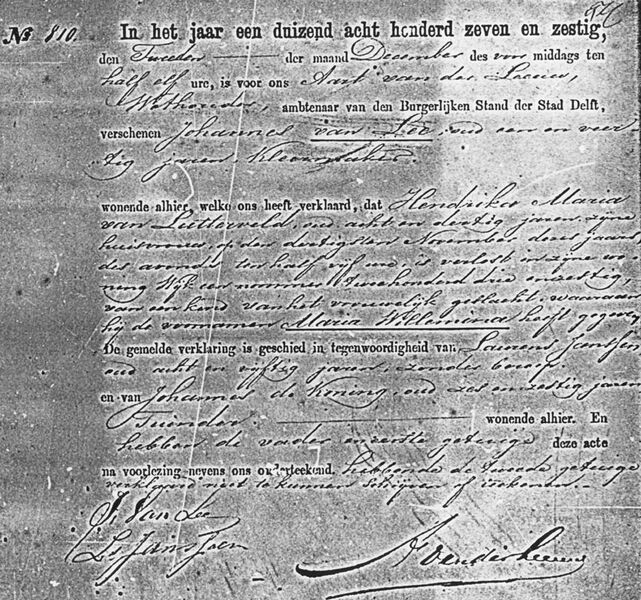 No 810. In het jaar een duizend acht honderd zeven en zestig,
den Tweeden der maand December des voor middags ten
half elf ure, is voor ons Aart van der Leeuw,
Wethouder, ambtenaar van den Burgerlijken Stand der Stad Delft,
verschenen Johannes van Lee, oud een en veer
tig jaren, Kleermaker.
wonende alhier, welke ons heeft verklaard, dat Hendrika Maria
van Lutterveld, oud acht en dertig jaren, zijne
huisvrouw, op den dertigsten November dezes jaars
des avonds ten half vijf ure is verlost in zijne wo
ning Wijk een nommer Tweehonderd drie en zestig,
van een kind van het vrouwelijk geslacht, waaraan
hij de voornamen Maria Willemina heeft gegeven
De gemelde verklaring is geschied in tegenwoordigheid van Laurens Jantjen
oud acht en vijftig jaren, zonder beroep
en van Johannes de Koning, oud zes en zestig jaren
Tuinder wonende alhier. En
hebben de vader en eerste getuige deze acte
na voorlezing nevens ons onderteekend, hebbende de tweede getuige
verklaard niet te kunnen schrijven of teekenen.
J. Van Lee
Ls Jansjaen
A vander Leeuw